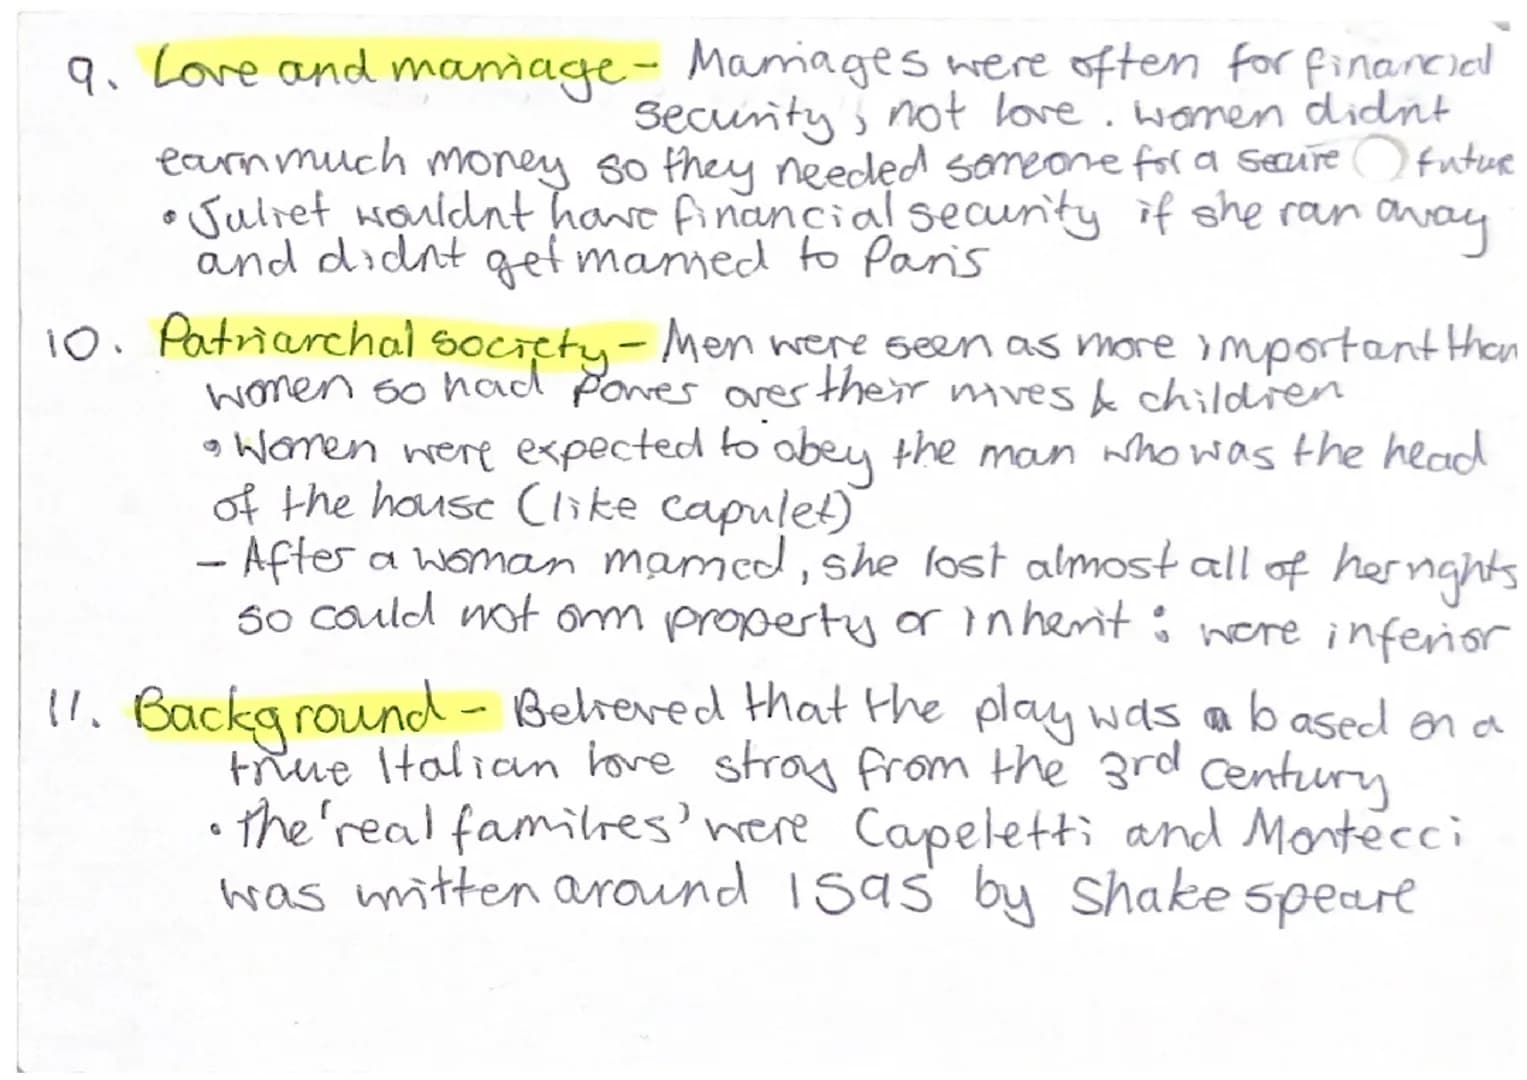 9. Love and marriage - Marriages were often for financial
security, not love. women didnt
earn much money so they needed someone for a secure future
• Juliet wouldnt have financial security if she ran away
and didnt get married to Paris
10. Patriarchal society - Men were seen as more important than
women so had power over their wives & children
• Women were expected to obey the man who was the head
of the house (like capulet)
- After a woman married, she lost almost all of her rights
so could not own property or inherit : were inferior
11. Background - Believed that the play was based on a
true Italian love stroy from the 3rd century
• The 'real families' were Capeletti and Montecci
was written around 1595 by Shakespeare